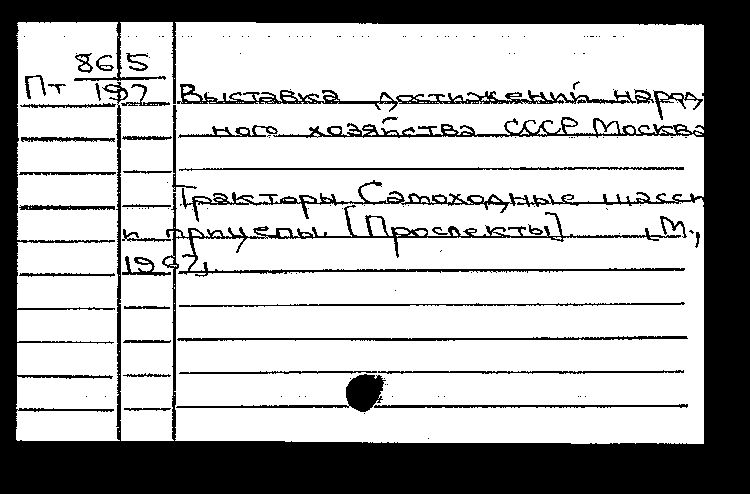 86 5
Пт 197 Выставка достижений народ
ного хозяйства СССР Москва
Тракторы. Самоходные шасси
и прицепы. [Проспекты]. [М.,
1967].